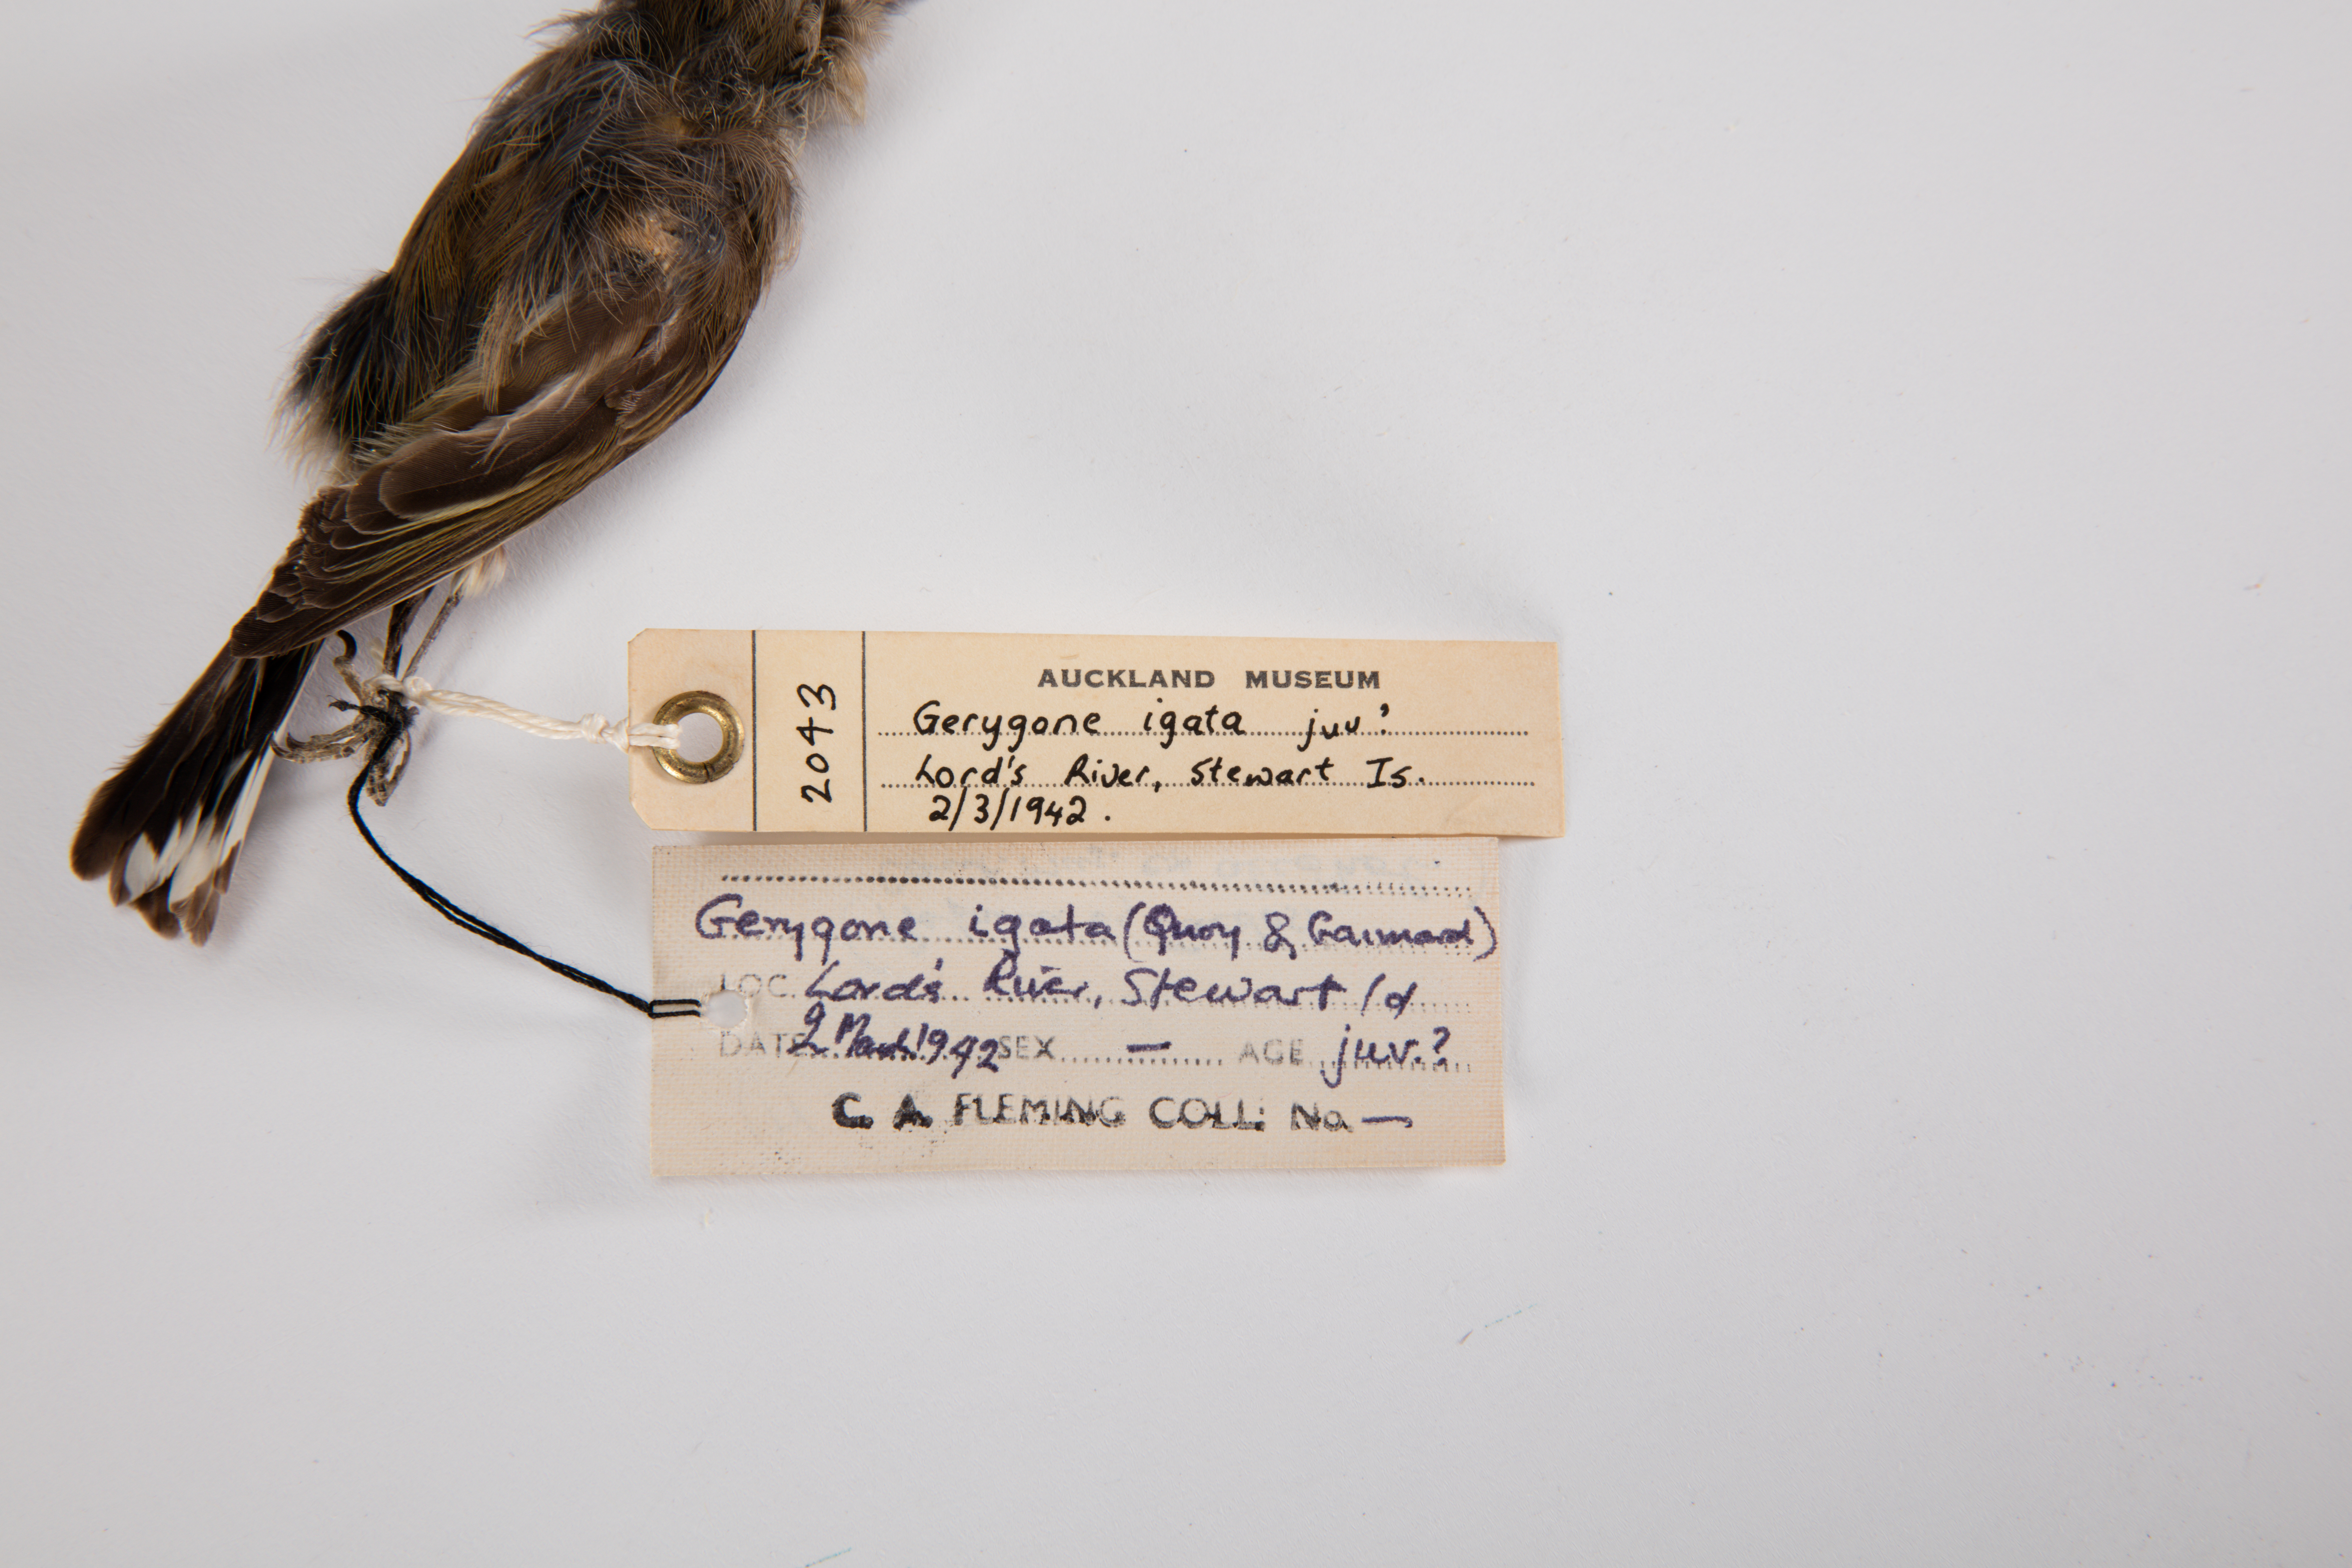 AUCKLAND MUSEUM
2043
Gerygone igata juv?
Lord's River, Stewart Is.
2/3/1942.
Gerygone igata (Quoy & Gaimard)
LOC. Lord's River, Stewart Id
DATE 2 March 1942 SEX — AGE juv.?
C. A. FLEMING COLL: No —